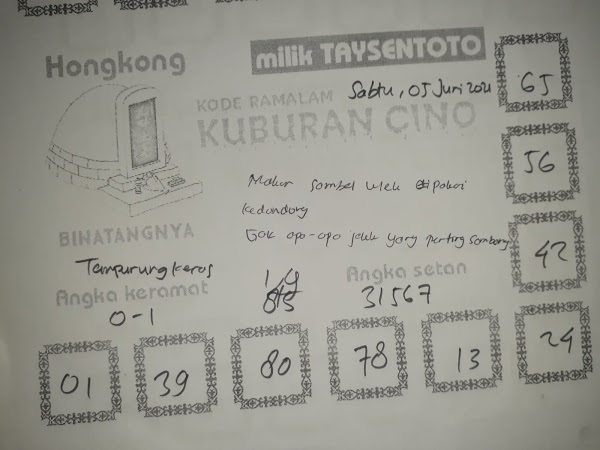 Hongkong
milik TAYSENTOTO
Sabtu, 05 Juni 2021
KODE RAMALAM
KUBURAN CINO
65
56
Makan sambel ulek dipakai
kedondong
Gak opo-opo jelek yang penting sombong
42
BINATANGNYA
Tempurung keras
Angka keramat
0-1
Angka setan
31567
01
39
80
78
13
24